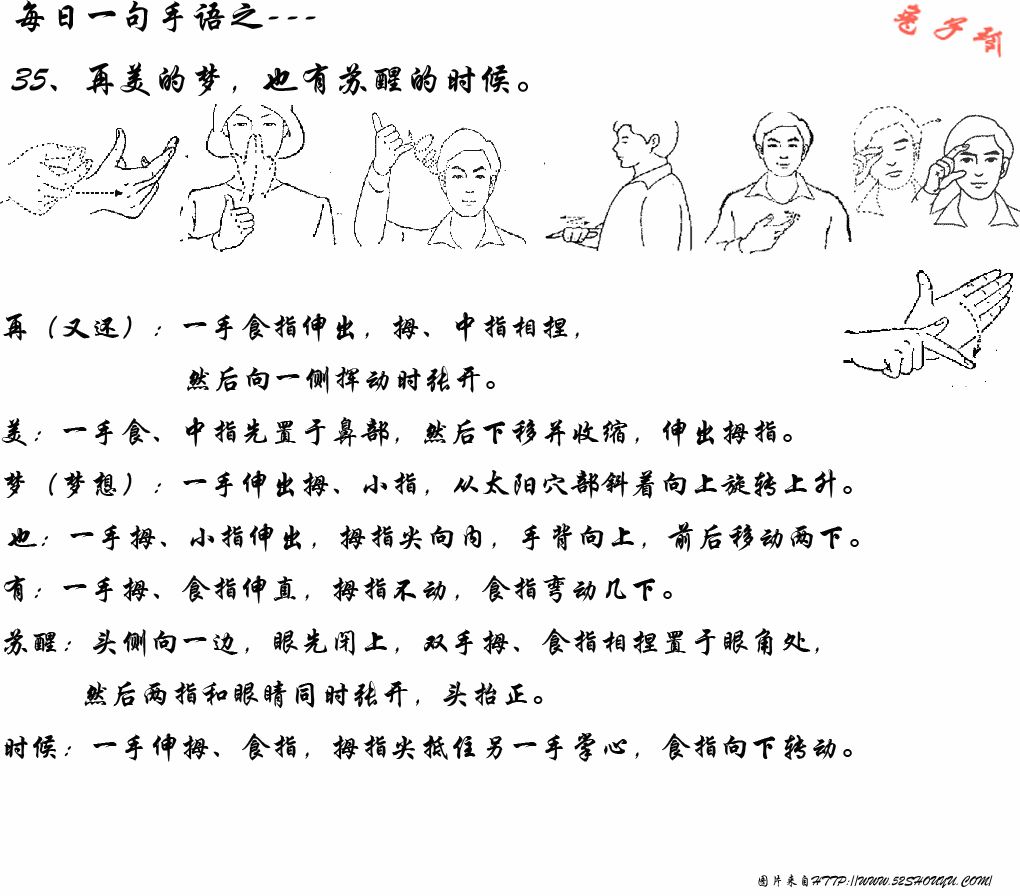 每日一句手语之---
兔子哥
35、再美的梦，也有苏醒的时候。
再（又还）：一手食指伸出，拇、中指相捏，
然后向一侧挥动时张开。
美：一手食、中指先置于鼻部，然后下移并收缩，伸出拇指。
梦（梦想）：一手伸出拇、小指，从太阳穴部斜着向上旋转上升。
也：一手拇、小指伸出，拇指尖向内，手背向上，前后移动两下。
有：一手拇、食指伸直，拇指不动，食指弯动几下。
苏醒：头侧向一边，眼先闭上，双手拇、食指相捏置于眼角处，
然后两指和眼睛同时张开，头抬正。
时候：一手伸拇、食指，拇指尖抵住另一手掌心，食指向下转动。
图片来自HTTP://WWW.52SHOUYU.COM/